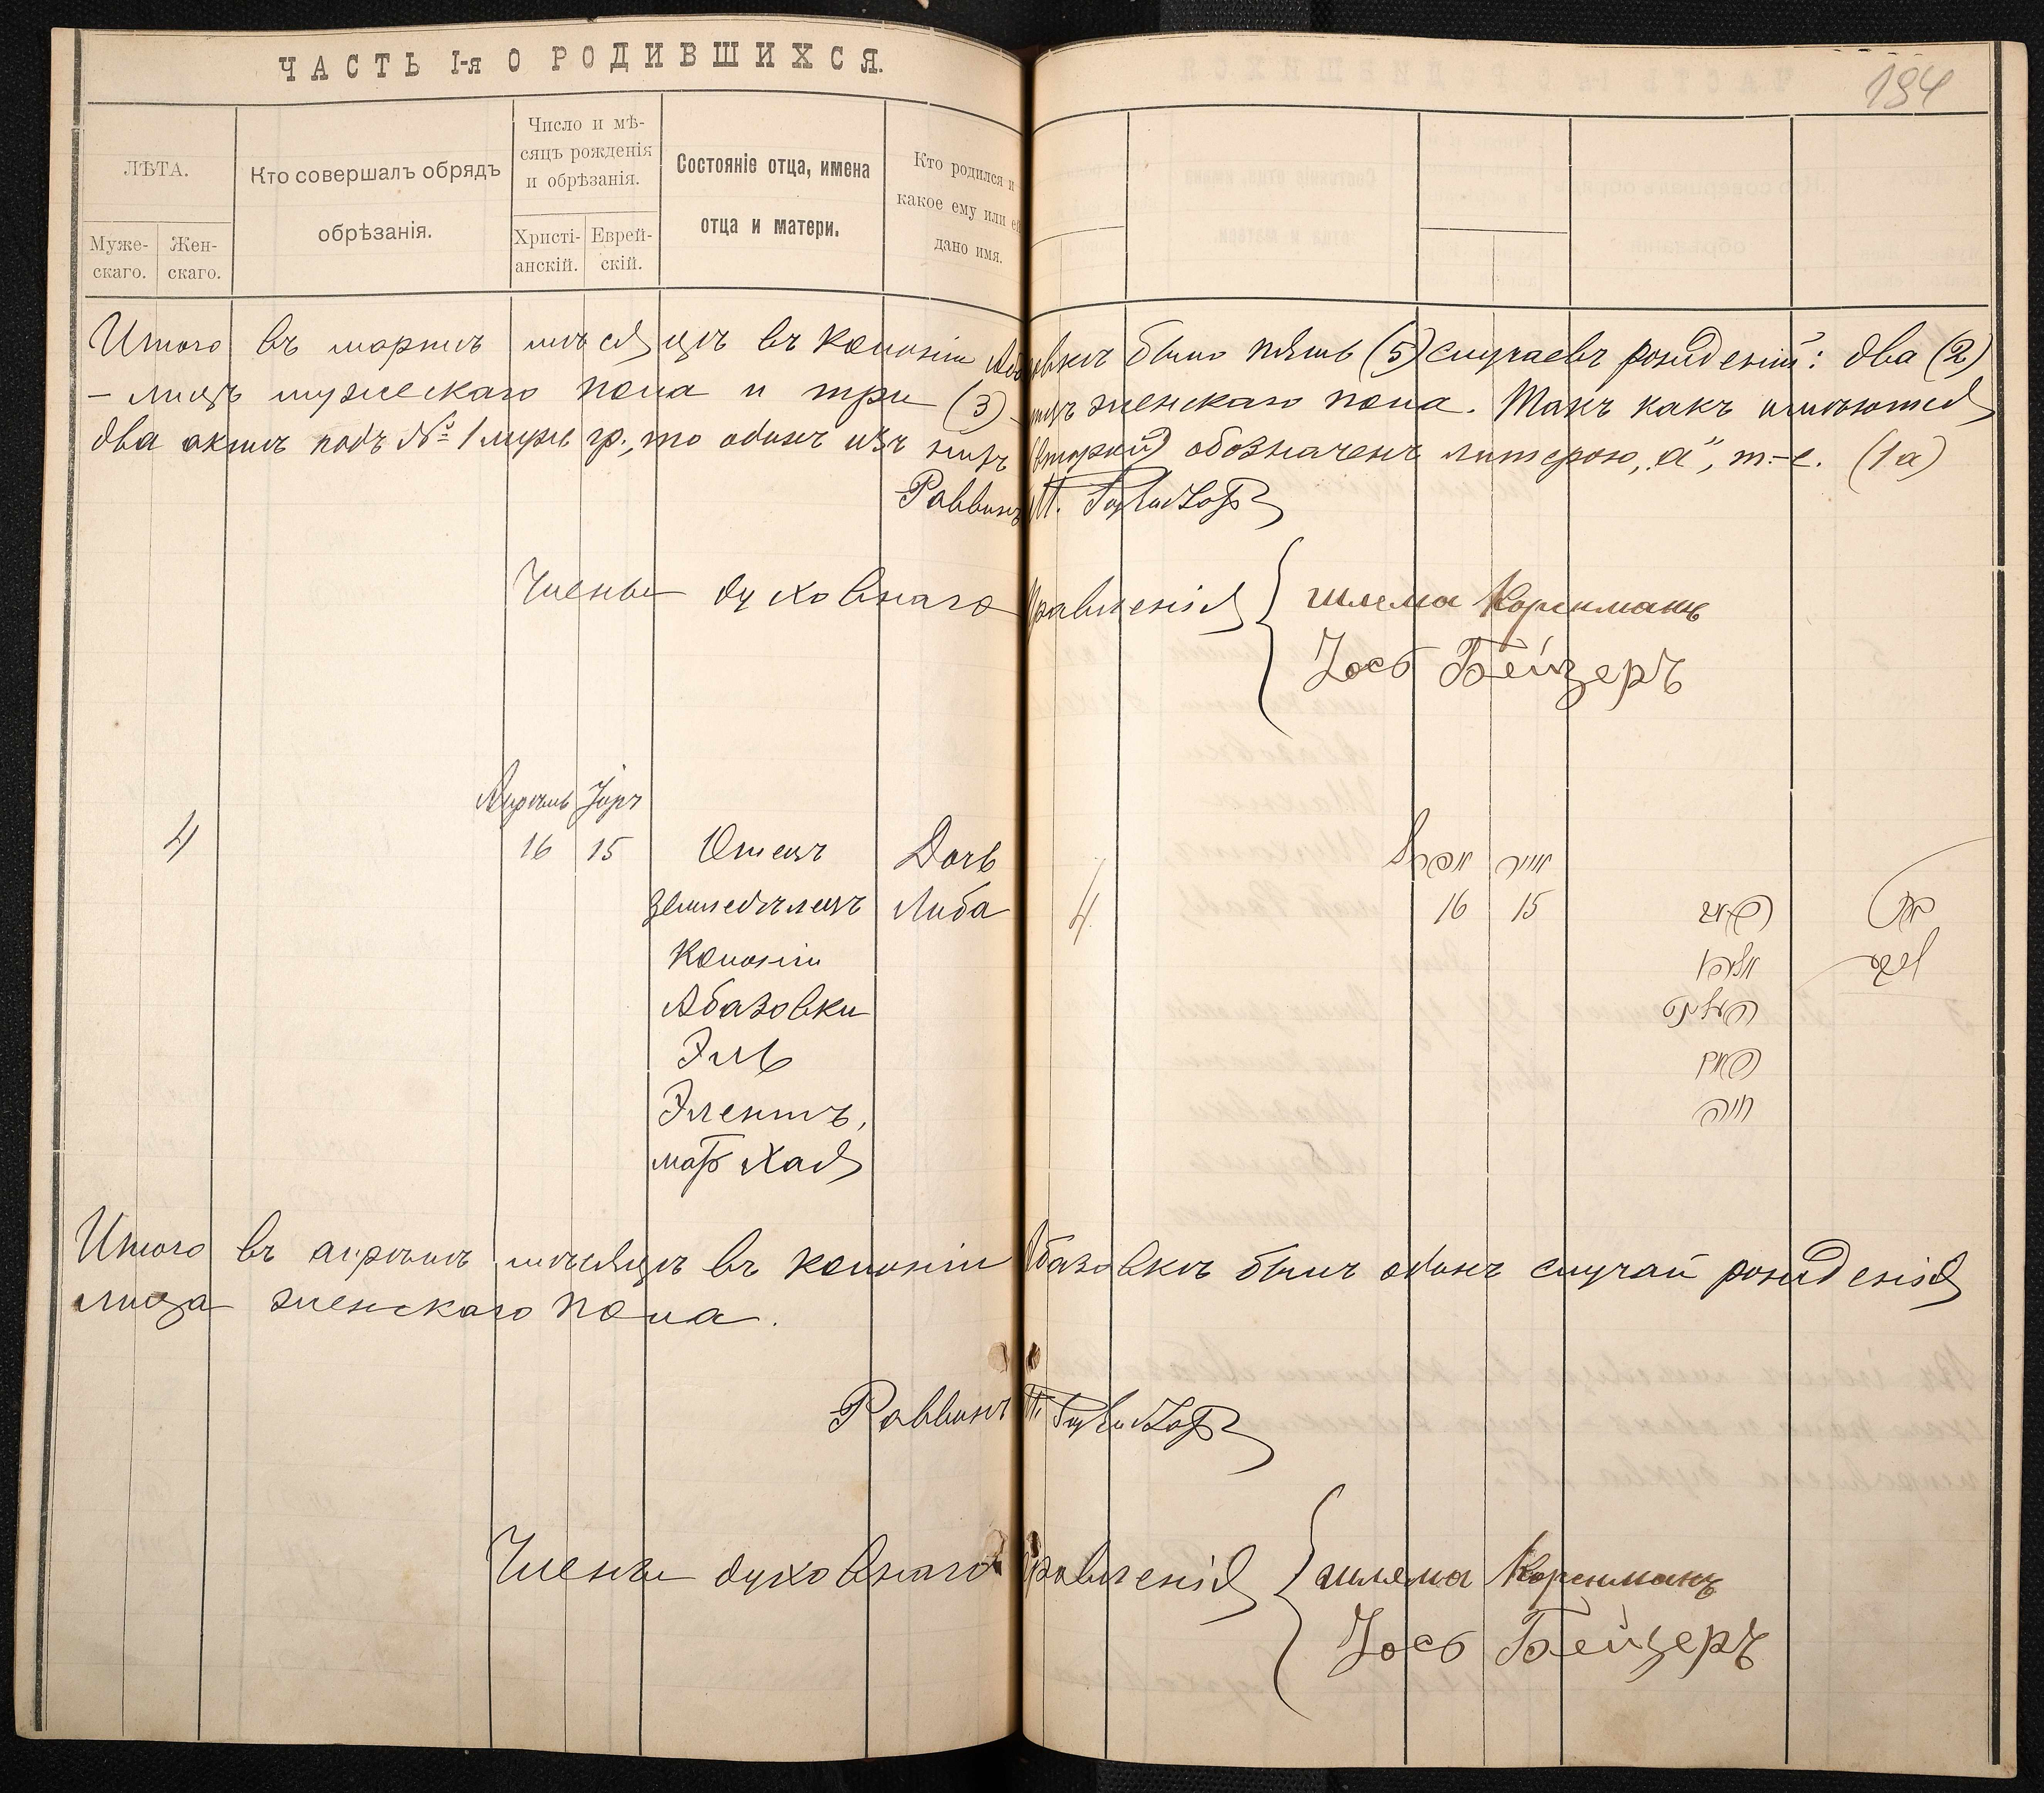 ЧАСТЬ I-я О РОДИВШИХСЯ.
194
ЛѢТА.
Муже-
скаго.
Жен-
скаго.
Кто совершалъ обрядъ
обрѣзанія.
Число и мѣ-
сяцъ рожденія
и обрѣзанія.
Христі-
анскій.
Еврей-
скій.
Состояніе отца, имена
отца и матери.
Кто родился и
какое ему или ей
дано имя.
Итого въ мартѣ мѣсяцѣ въ колоніи Абазовкѣ было пять (5) случаевъ рожденій: два (2)
– лицъ мужескаго пола и три (3) – лицъ женскаго пола. Такъ какъ имѣются
два акта подъ № 1 муж. гр., то одинъ изъ нихъ (второй) обозначенъ литерою „а“, т.-е. (1а)
Раввинъ
Члены духовнаго правленія
Шлема Коренманъ
Іось Бейзеръ
Апрѣль Іяръ
4 16 15 Отецъ Дочь
земледѣлецъ Либа
колоніи
Абазовки
Эль
Элентъ,
мать Хая
אפריל אייר
4 16 15
בת
חיה
Итого въ апрѣлѣ мѣсяцѣ въ колоніи Абазовкѣ былъ одинъ случай рожденія
лица женскаго пола.
Раввинъ
Члены духовнаго правленія
Шлема Коренманъ
Іось Бейзеръ